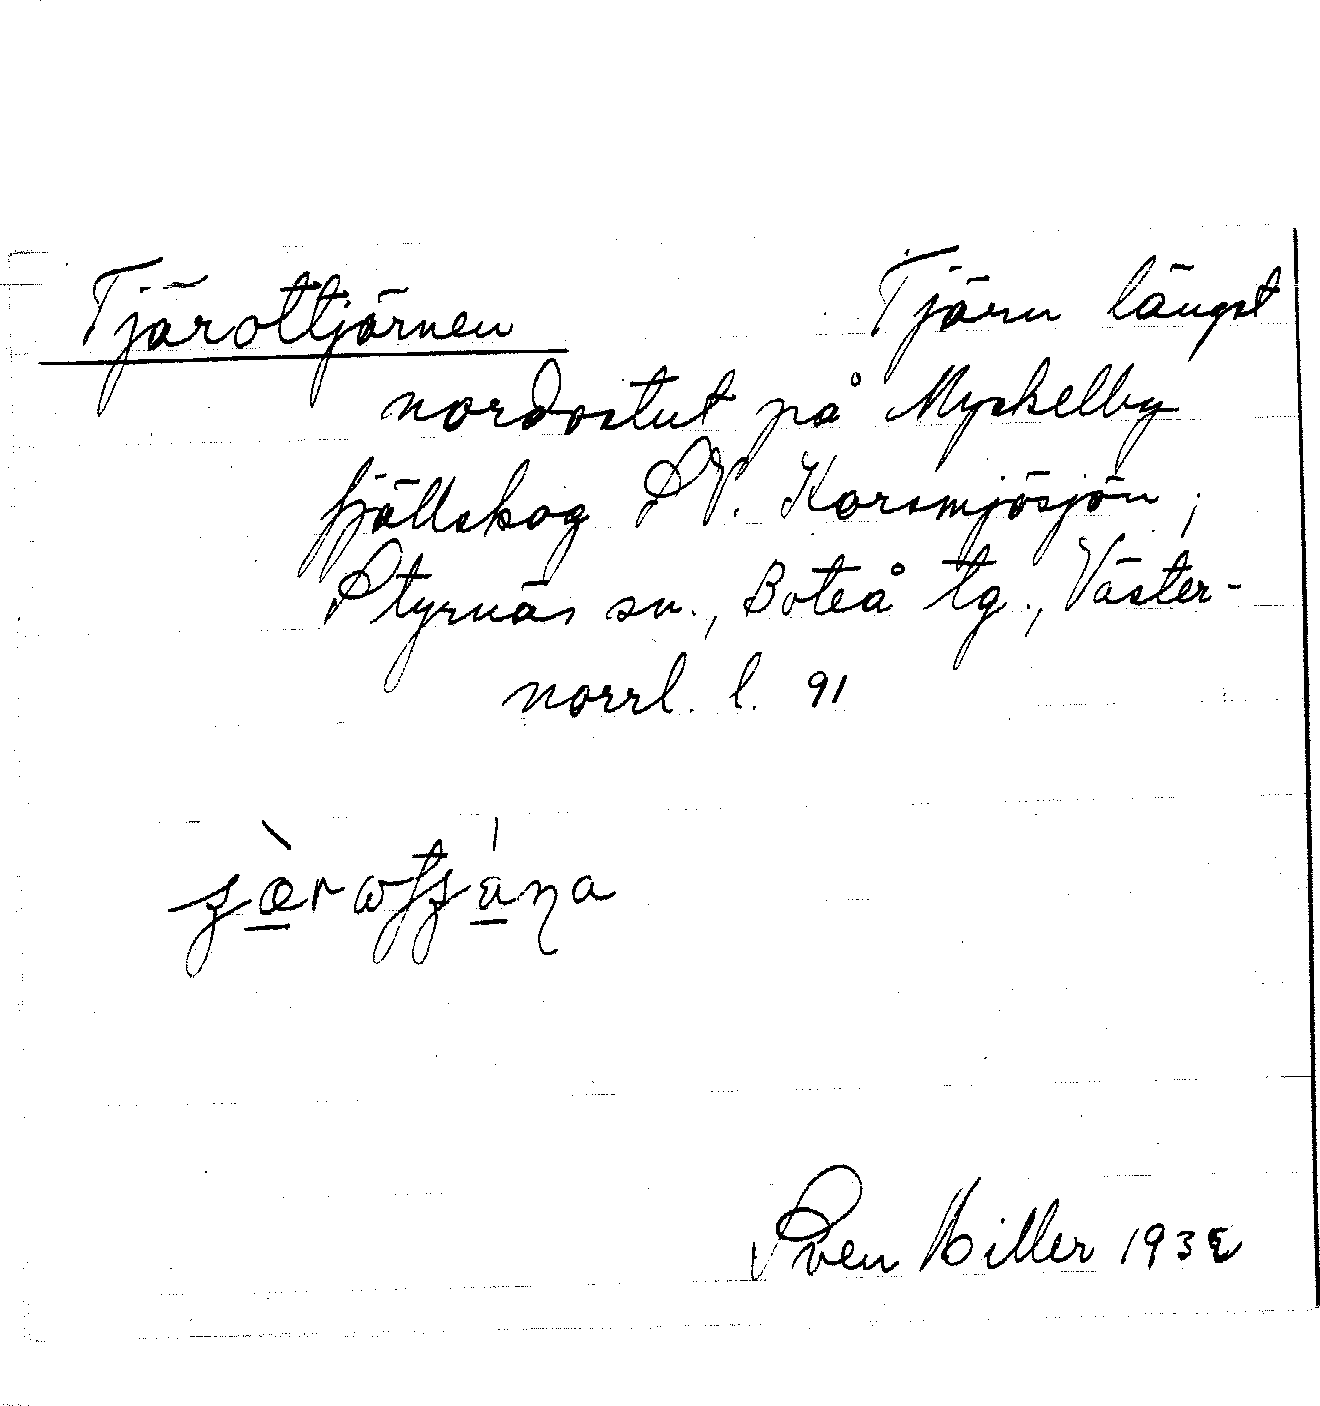 Tjärottjärnen Tjärn längst
nordostut på Myckelby
fjällskog SV. Korsmjösjön;
Styrnäs sn., Boteå tg., Väster-
norrl. l. 91
Sven Hiller 1932